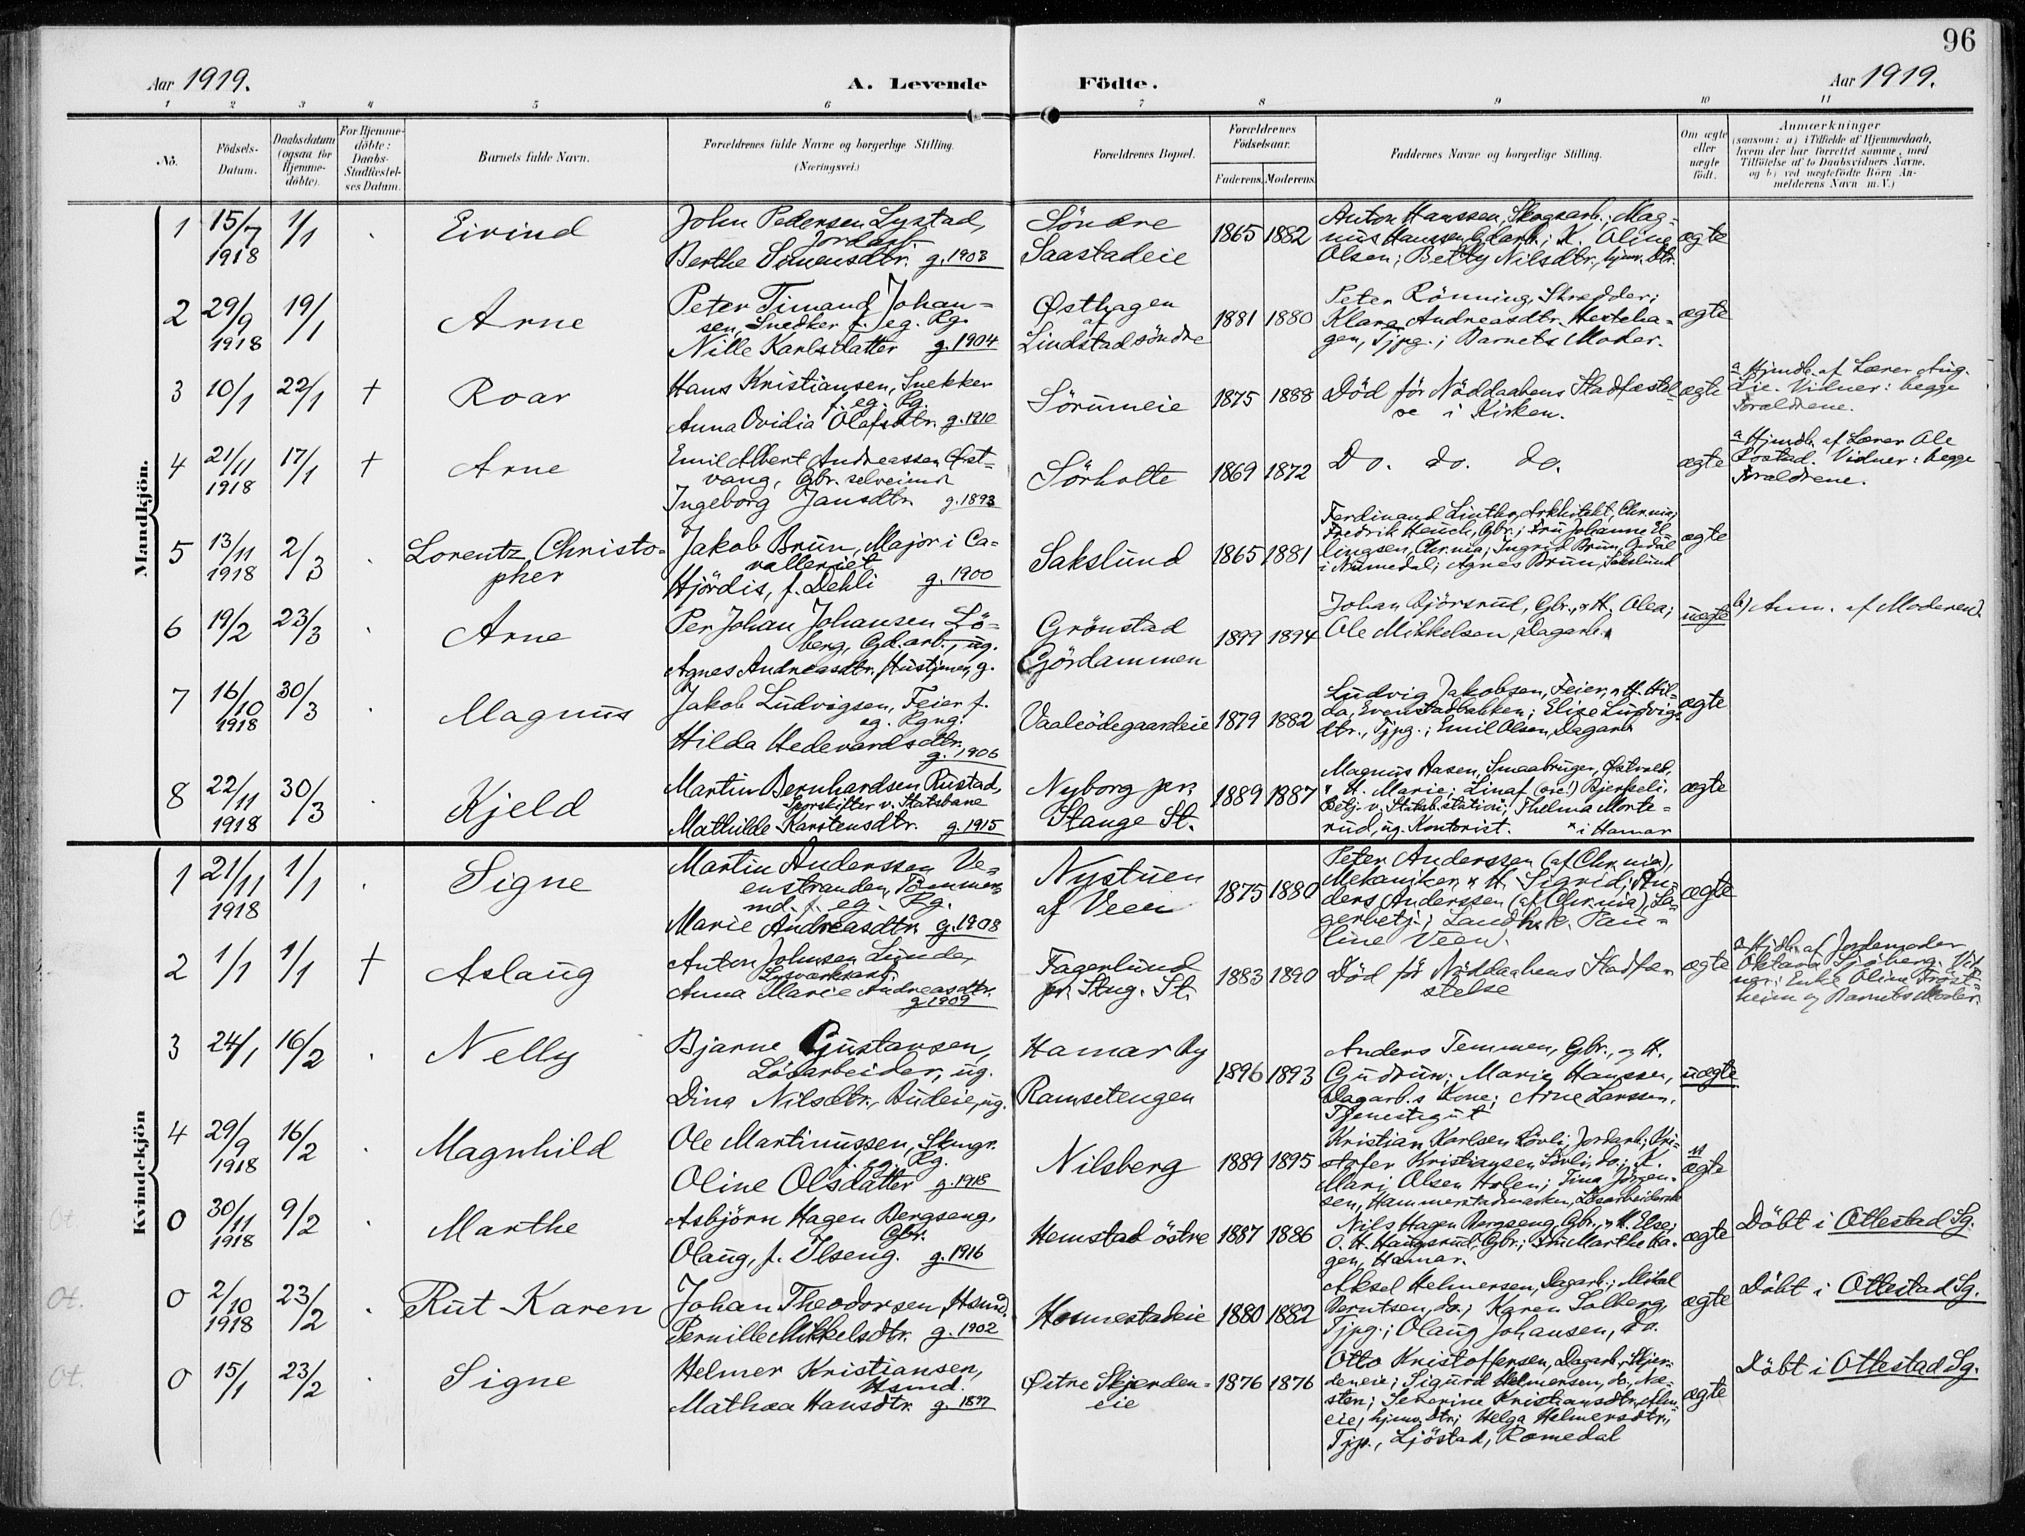 96
Aar 1919.
A. Levende Födte.
Aar 1919.
1 2 3 4 5 6 7 8 9 10 11
No.
Födsels-
Datum.
Daabsdatum
(ogsaa for
Hjemme-
döbte).
For Hjemme-
döbte:
Daabs-
Stadfæstel-
ses Datum.
Barnets fulde Navn.
Forældrenes fulde Navne og borgerlige Stilling.
(Næringsvei.)
Forældrenes Bopæl.
Forældrenes
Födselsaar.
Faderens. Moderens.
Faddernes Navne og borgerlige Stilling.
Om ægte
eller
uægte
födt.
Anmærkninger
(saasom: a) i Tilfælde af Hjemmedaab,
hvem der har forrettet samme, med
Tilföielse af to Daabsvidners Navne,
og b) ved uægtefödte Börn An-
melderens Navn m. V.)
Mandkjön.
1 15/7 1918 1/1 Eivind
John Pedersen Lystad,
Jordarb.
Berthe Simensdtr. g. 1903
Söndre
Saastadeie
1865 1882
Anton Hanssen, Skogsarb.; Mag-
nus Hanssen, Gdarb.; K. Aline
Olsen; Betty Nilsdtr., hjmv. Dtr.
ægte
2 29/9 1918 19/1 Arne
Peter Timand Johan-
sen, Snedker f. eg. Rg.
Nille Karlsdatter g. 1904
Østhagen
af
Lindstad söndre
1881 1880
Peter Rönning, Skredder;
Klara Andreasdtr. Hesteha-
gen, Tjpg.; Barnets Moder.
ægte
3 10/1 22/1 † Roar
Hans Kristiansen, Snekker
f. eg. Rg.
Anna Ovidia Olafsdtr. g. 1910
Sörumeie
1875 1888
Död för Nöddaabens Stadfæstel-
se i Kirken.
ægte
a Hjmdb. af Lærer Aug.
Lie. Vidner: begge
Forældrene.
4 21/11 1918 17/1 † Arne
Emil Albert Andreassen Øst-
vang, Gbr. selveiend
Ingeborg Jansdtr. g. 1893
Sörholte
1869 1872
Do. do. do.
ægte
a Hjmdb. af Lærer Ole
Rostad. Vidner: begge
Forældrene.
5 13/11 1918 2/3 Lorentz Christo-
pher
Jakob Brun, Major i Ca-
valleriet
Hjördis, f. Dehli g. 1900
Sakslund
1865 1881
Ferdinand Linthe, Arkhitekt, Chr.nia;
Fredrik Heuch, Gbr.; Fru Johanne El-
lingsen, Chr.nia; Ingrid Brun,
i Numedal; Agnes Brun, Sakslund
ægte
6 19/2 23/3 Arne
Per Johan Johansen Lö-
berg, Gd.arb., ug.
Agnes Andreasdtr., Hustjener, g.
Grönstad
Gördammen
1899 1894
Johan Björsrud, Gbr., & H. Olea;
Ole Mikkelsen, Dagarb.
uægte
b) Anm. af Moderen.
7 16/10 1918 30/3 Magnus
Jakob Ludvigsen, Feier f.
eg. Rgng.
Hilda Hedevardsdtr.
g. 1906
Vaaleödegaardeie
1879 1882
Ludvig Jakobsen, Feier, & H. Hil-
da, Evenstadbakken; Elise Ludvigs-
dtr., Tjpg.; Emil Olsen, Dagarb
ægte
8 22/11 1918 30/3 Kjeld
Martin Bernhardsen Rustad,
Sporskifter v. Statsbane
Mathilde Karstensdtr. g. 1915
Nyborg pr.
Stange St.
1889 1887
Magnus Aasen, Smaabruger,
& H. Marie; Linaf (sic!) Bjerkeli,
Betj. v. Statsb. station; Thelma Morte-
rud, ug. Kontorist. x i Hamar
ægte
Kvindekjön
1 21/11 1918 1/1 Signe
Martin Anderssen Ve-
enstranden, Tömmer-
md. f. eg. Rg.
Marie Andreasdtr. g. 1908
Nystuen
af Veen
1875 1880
Peter Anderssen (af Chr.nia),
Mekaniker, & H. Sigrid; An-
ders Anderssen (af Chr.nia), La-
gerbetj.; Landh.k. Pau-
line Veen.
ægte
2 1/1 1/1 † Aslaug
Anton Johnsen Lunde,
Lysværksarb.
Anna Marie Andreasdtr.
g. 1909
Fagerlund
pr. Stng. St.
1883 1890
Död för Nöddaabens Stadfæ-
stelse
ægte
a Hjdb. af Jordemoder
Oktava Sjöberg. Vid-
ner: Enke Oline Frost-
heim og Barnets Moder.
3 24/1 16/2 Nelly
Bjarne Gustavsen,
Lösarbeider, ug.
Dina Nilsdtr., Budeie, ug.
Hamar By
Ramsetengen
1896 1893
Anders Temmen, Gbr., og H.
Gudrun; Marie Hanssen,
Dagarb.s Kone; Arne Larssen,
Tjenestegut
uægte
4 29/9 1918 16/2 Magnhild
Ole Martinussen, Skmgr.
f. eg. Rg.
Oline Olsdatter g. 1918
Nilsberg
1889 1895
Kristian Karlsen Lövli, Jordarb.; Kri-
stofer Kristiansen Lövli, do.; K.
Mari Olsen Holen; Tina Jörgen-
sen, Hammerstadmarken, Lösarbeiderske
ægte
Ot. 0 30/11 1918 9/2 Marthe
Asbjörn Hagen Bergseng,
Gbr.
Olaug, f. Ilseng. g. 1916
Hemstad östre
1887 1886
Nils Hagen Bergseng, Gbr., & H. Else;
O. H. Haugsrud, Gbr.; Fru Marthe Ha-
gen, Hamar.
ægte
Döbt i Ottestad Sg.
Ot. 0 2/10 1918 23/2 Rut Karen
Johan Theodorsen, Hsmd.
Pernille Mikkelsdtr. g. 1902
Hommestadeie
1880 1882
Aksel Helmersen, Dagarb.; Mikal
Berntsen, do.; Karen Solberg,
Tjpg.; Olaug Johansen, do.
ægte
Döbt i Ottestad Sg.
Ot. 0 15/1 23/2 Signe
Helmer Kristiansen,
Hsmd.
Mathea Hansdtr. g. 1897
Østre Skjerden-
eie
1876 1876
Otto Kristoffersen, Dagarb., Skjer-
deneie; Sigurd Helmersen, do. Næ-
sten; Severine Kristiansdtr.,
eie, hjmv. Dtr; Helga Helmersdtr.,
Tjp., Ljöstad, Romedal
ægte
Döbt i Ottestad Sg.